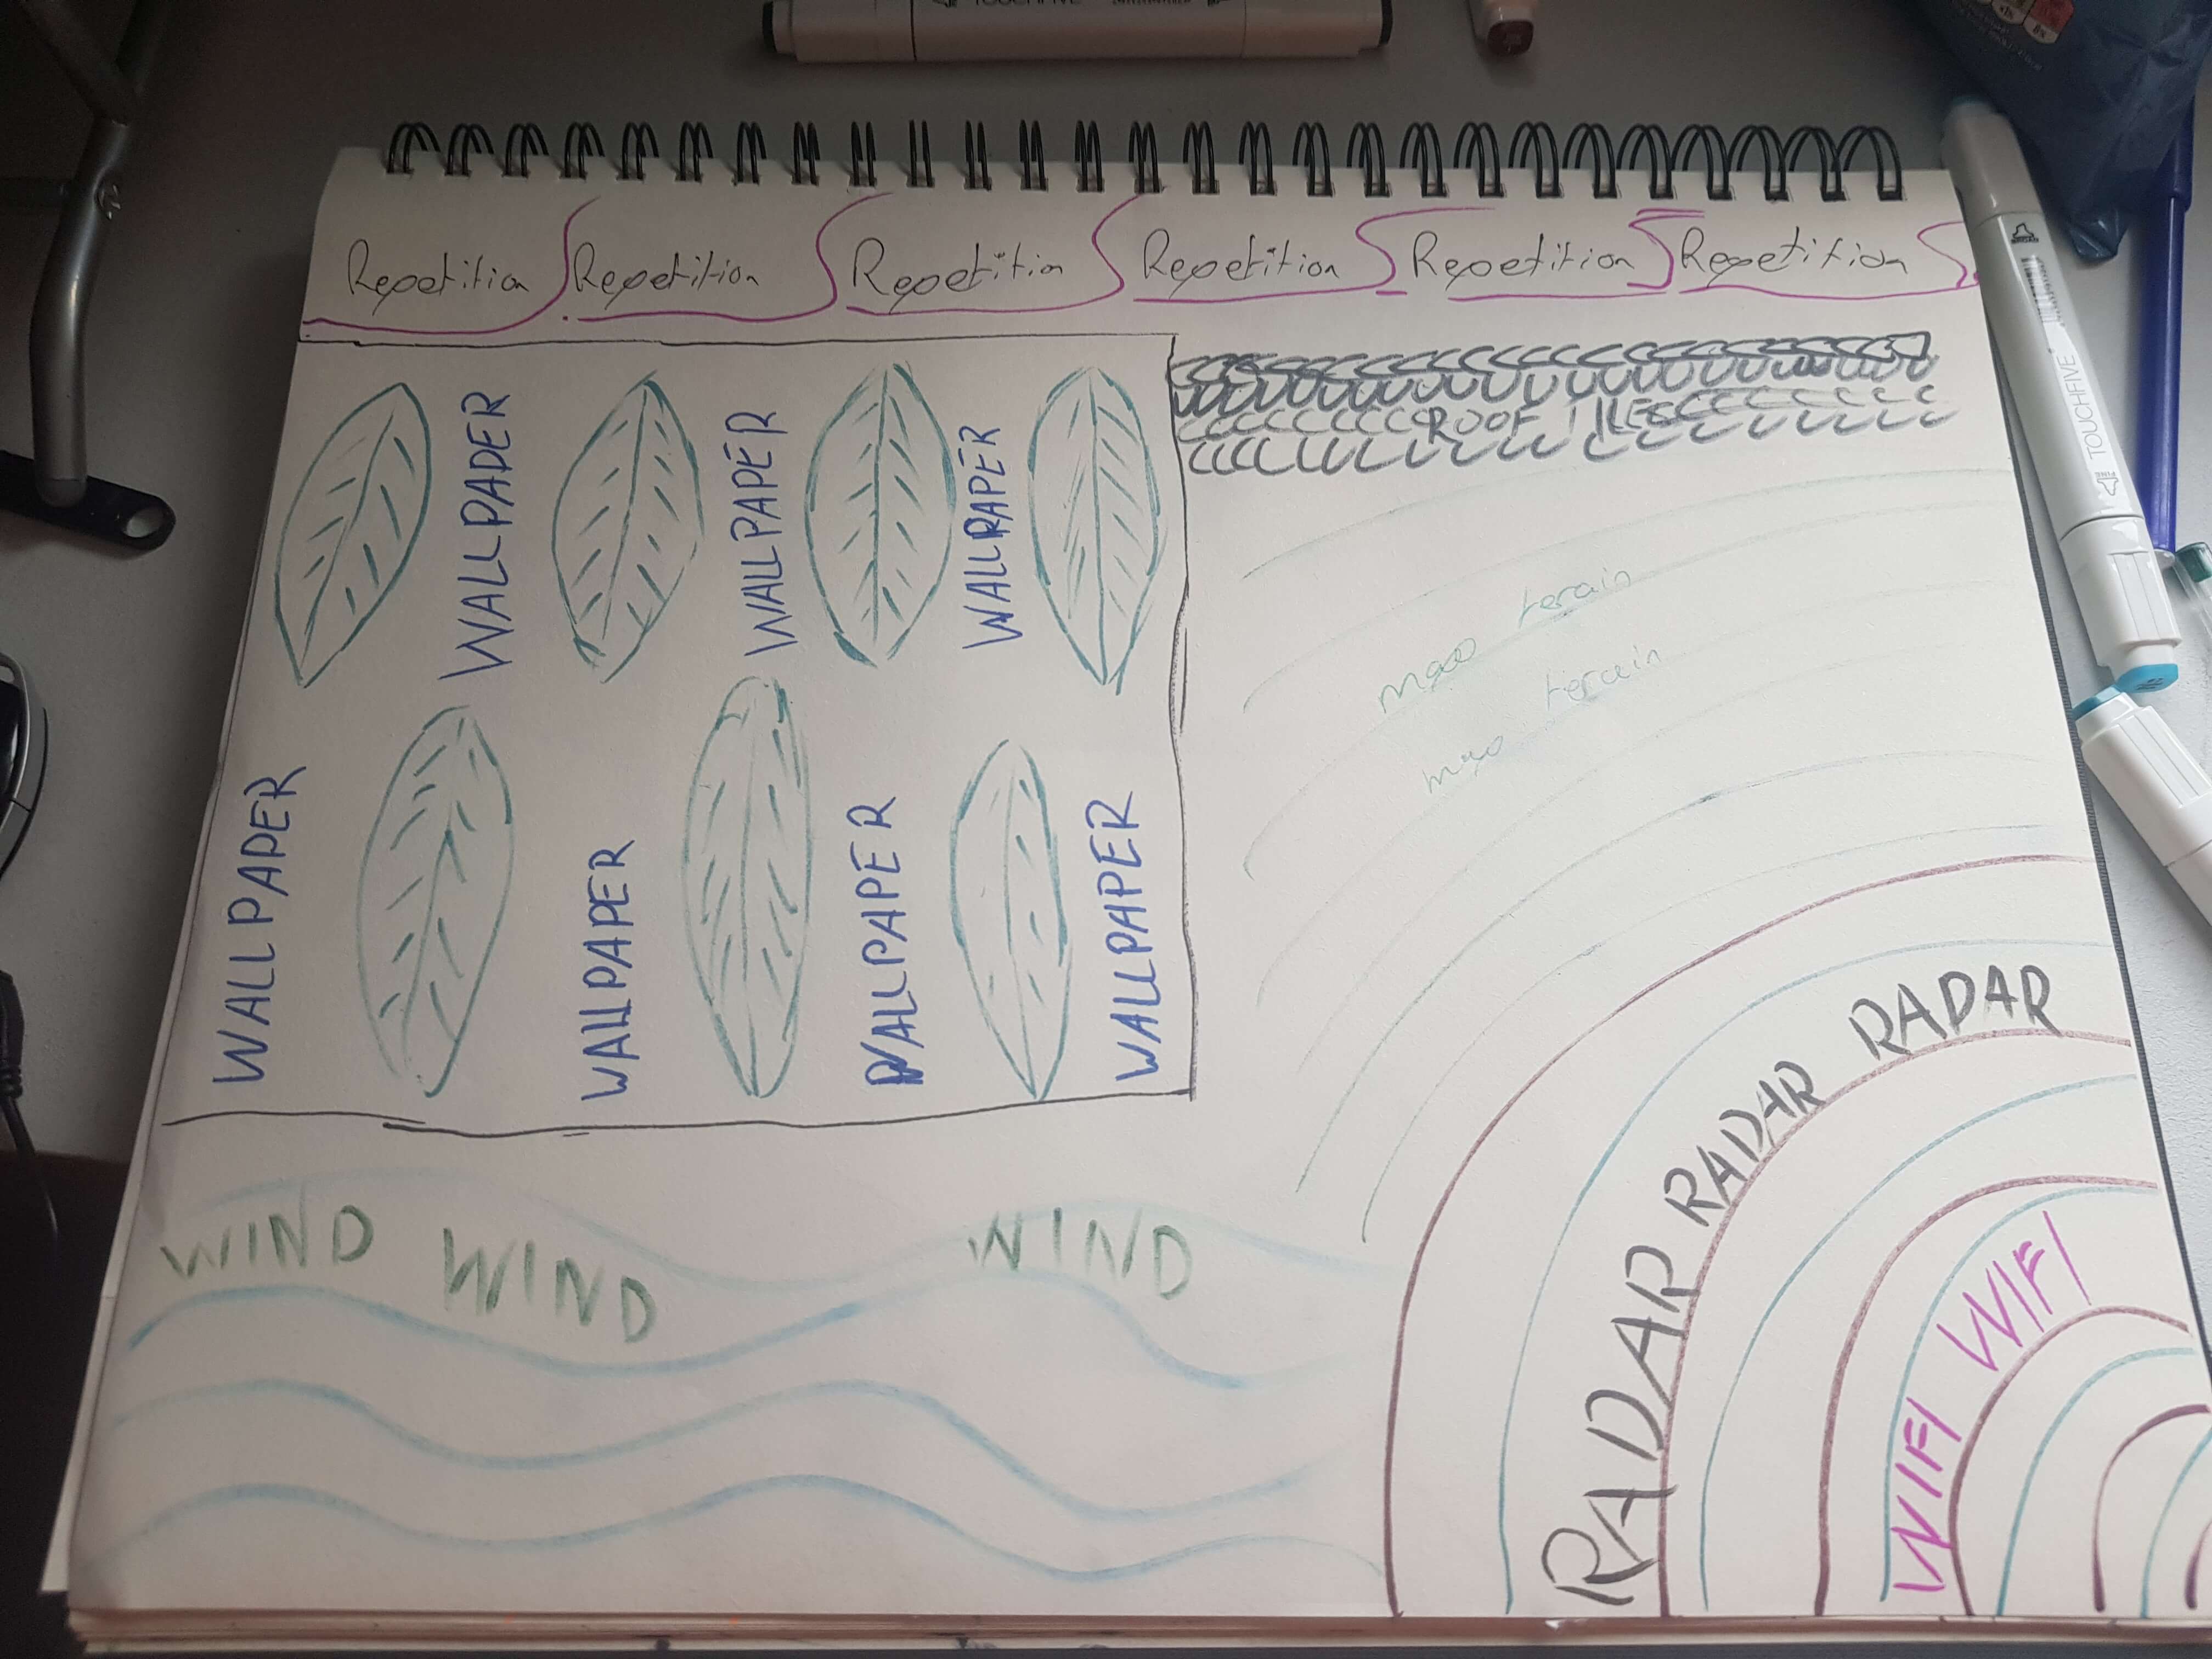 Repetition Repetition Repetition Repetition Repetition Repetition
WALLPAPER WALLPAPER WALLPAPER
WALLPAPER WALLPAPER WALLPAPER WALLPAPER
ROOF TILES
terain
terain
WIND WIND WIND
RADAR RADAR RADAR
WIFI WIFI
TOUCHFIVE
TOUCHFIVE